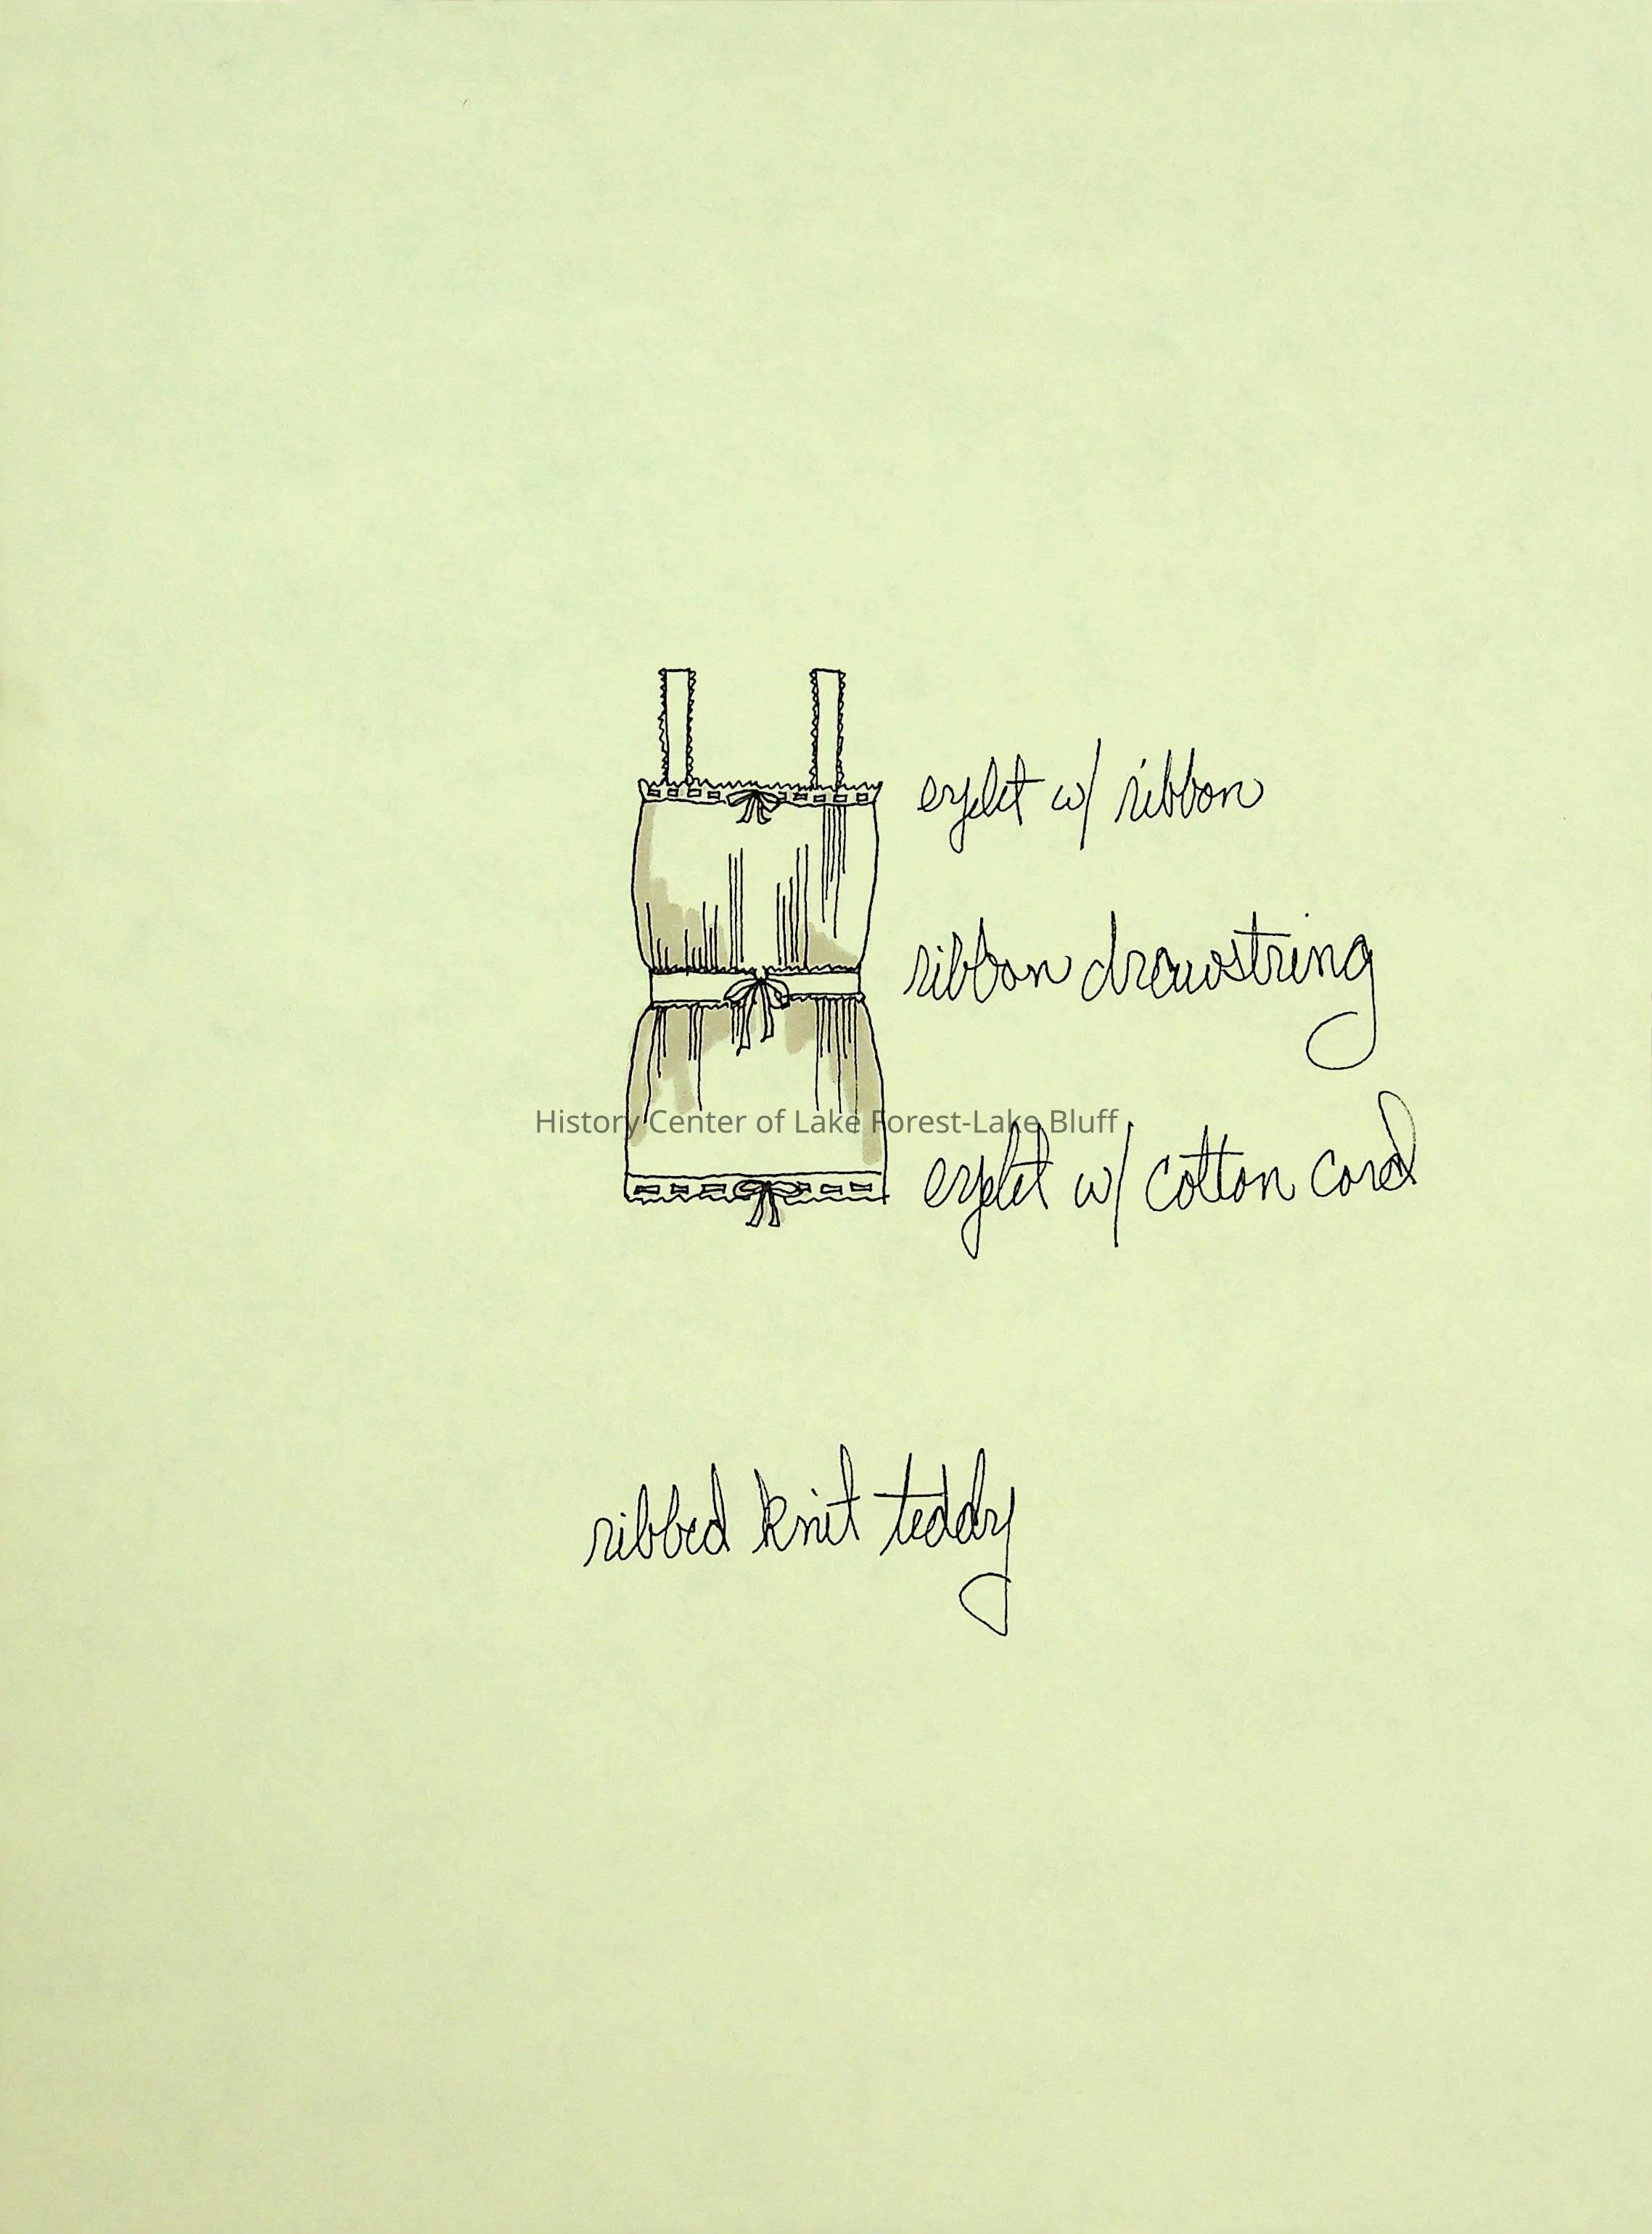 eyelet w/ ribbon
ribbon drawstring
History Center of Lake Forest-Lake Bluff
eyelet w/ cotton cord
ribbed knit teddy